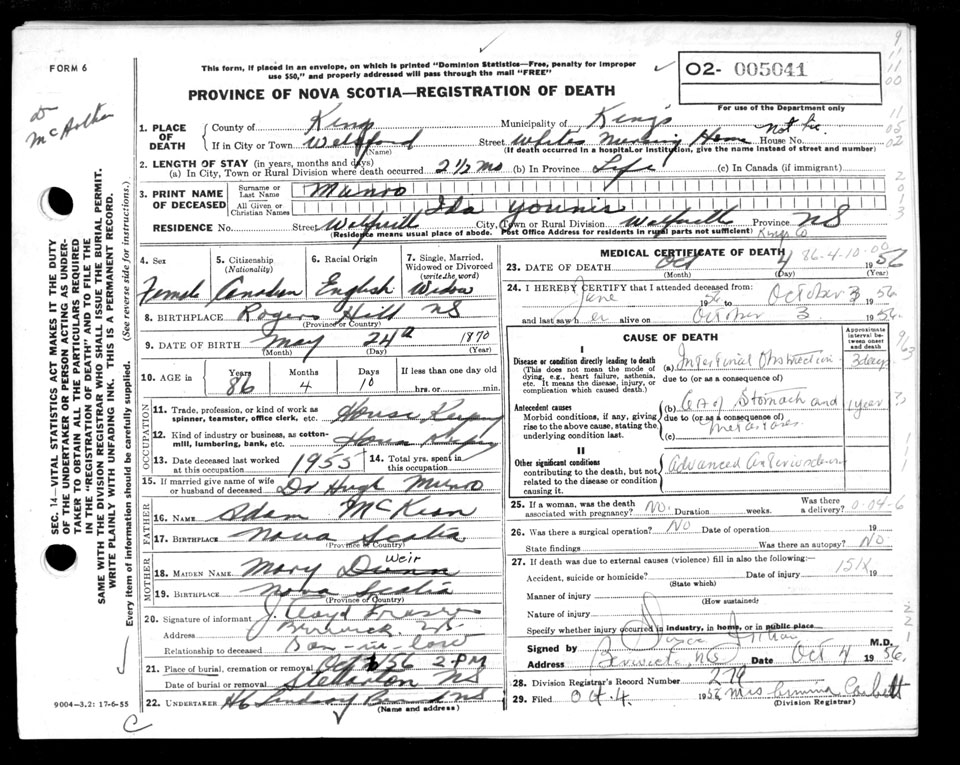 FORM 6
This form, if placed in an envelope, on which is printed "Dominion Statistics—Free, penalty for improper
use $50," and properly addressed will pass through the mail "FREE"
02- 005041
PROVINCE OF NOVA SCOTIA—REGISTRATION OF DEATH
For use of the Department only
McArthur
1. PLACE OF DEATH
County of Kings
Municipality of Kings
If in City or Town
(Name)
Street Whites Nursing Home House No.
(If death occurred in a hospital or institution, give the name instead of street and number)
2. LENGTH OF STAY (in years, months and days)
(a) In City, Town or Rural Division where death occurred 2 1/2 mo (b) In Province Life (c) In Canada (if immigrant)
3. PRINT NAME OF DECEASED
Surname or Last Name Munro
All Given or Christian Names Ida
RESIDENCE No. Street City, Town or Rural Division Province NS
(Residence means usual place of abode. Post Office Address for residents in rural parts not sufficient) Kings Co
4. Sex
Female
5. Citizenship
(Nationality)
Canadian
6. Racial Origin
English
7. Single, Married,
Widowed or Divorced
(write the word)
Widow
8. BIRTHPLACE Rogers Hill NS
(Province or Country)
9. DATE OF BIRTH May 24th 1870
(Month) (Day) (Year)
10. AGE in Years Months Days If less than one day old
86 4 10 hrs. or min.
OCCUPATION
11. Trade, profession, or kind of work as
spinner, teamster, office clerk, etc. House Keeping
12. Kind of industry or business, as cotton-
mill, lumbering, bank, etc.
13. Date deceased last worked
at this occupation 1955
14. Total yrs. spent in
this occupation
15. If married give name of wife
or husband of deceased Dr Hugh Munro
FATHER
16. NAME Adam McKean
17. BIRTHPLACE Nova Scotia
(Province or Country)
MOTHER
18. MAIDEN NAME Mary Weir
19. BIRTHPLACE Nova Scotia
(Province or Country)
20. Signature of informant J. Lloyd Fraser
Address Berwick, NS
Relationship to deceased Son-in-law
21. Place of burial, cremation or removal 56 2 PM
Date of burial or removal Stellarton NS
22. UNDERTAKER NS
(Name and address)
9004—3.2: 17-6-55
SEC. 14—VITAL STATISTICS ACT MAKES IT THE DUTY
OF THE UNDERTAKER OR PERSON ACTING AS UNDER-
TAKER TO OBTAIN ALL THE PARTICULARS REQUIRED
IN THE "REGISTRATION OF DEATH" AND TO FILE THE
SAME WITH THE DIVISION REGISTRAR WHO SHALL ISSUE THE BURIAL PERMIT.
WRITE PLAINLY WITH UNFADING INK. THIS IS A PERMANENT RECORD.
Every item of information should be carefully supplied. (See reverse side for instructions.)
MEDICAL CERTIFICATE OF DEATH
86-4-10-00
23. DATE OF DEATH Oct 4 1956
(Month) (Day) (Year)
24. I HEREBY CERTIFY that I attended deceased from:
June 56 to October 3 1956
and last saw her alive on October 3 1956
CAUSE OF DEATH
Approximate
interval be-
tween onset
and death
I
Disease or condition directly leading to death
(This does not mean the mode of
dying, e.g., heart failure, asthenia,
etc. It means the disease, injury, or
complication which caused death.)
(a) Intestinal Obstruction 3 days
due to (or as a consequence of)
Antecedent causes
Morbid conditions, if any, giving
rise to the above cause, stating the
underlying condition last.
(b) Ca of Stomach and 1 year
due to (or as a consequence of)
(c) metastases
II
Other significant conditions
contributing to the death, but not
related to the disease or condition
causing it.
Advanced
25. If a woman, was the death
associated with pregnancy? No. Duration weeks. Was there
a delivery?
26. Was there a surgical operation? No Date of operation 19
State findings Was there an autopsy? No
27. If death was due to external causes (violence) fill in also the following:
Accident, suicide or homicide? Date of injury 151X 19
(State which)
Manner of injury
(How sustained)
Nature of injury
Specify whether injury occurred in industry, in home, or in public place
Signed by M.D.
Address Berwick, NS Date Oct 4 1956.
28. Division Registrar's Record Number 279
29. Filed Oct. 4 1956 Mrs
(Division Registrar)